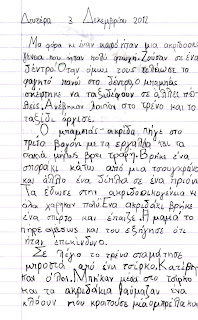 Δευτέρα 3 Δεκεμβρίου 2012
Μια φορά κι έναν καιρό ήταν μια ακριδοοικο
γένεια που ήταν πολύ φτωχή. Ζούσαν σε ένα
δέντρο. Όταν όμως τους τελείωσε το
φαγητό πανω στο δέντρο, ο μπαμπάς
σκέφτηκε να ταξιδέψουν σε άλλες πό
λεις. Ανέβηκαν λοιπόν στο τρένο και το
ταξίδι άρχισε.
Ο μπαμπάς-ακρίδα πήγε στο
τρίτο βαγόνι με τα εργαλεία
σακιά μήπως βρει τροφή. Βρήκε ένα
σποράκι κάτω από μια τσουγκράνα
και άλλο ένα δίπλα σε ένα πριόνι
Τα έδωσε στην ακριδοοικογένεια κι
όλοι χάρηκαν πολύ. Ένα ακριδάκι βρήκε
ένα σπίρτο και έπαιζε. Η μαμά το
πήρε αμέσως και του εξήγησε ότι
ήταν επικίνδυνο.
Σε λίγο το τρένο σταμάτησε
μπροστά από ένα τσίρκο. Κατέβη
καν όλοι. Μπήκαν μέσα στο τσίρκο
και τα ακριδάκια θαύμαζαν ένα
κλόουν που κρατούσε μια ομπρέλα και